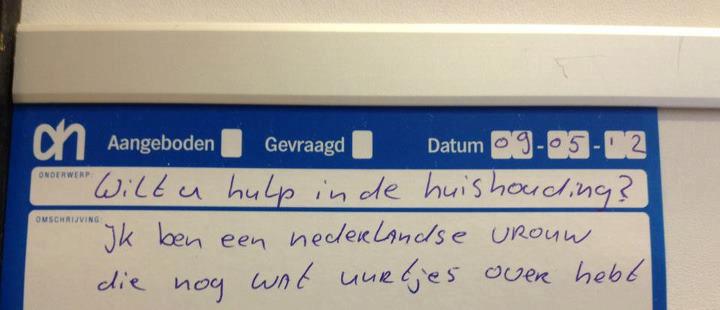 ah Aangeboden Gevraagd Datum 09-05-'12
ONDERWERP: Wilt u hulp in de huishouding?
OMSCHRIJVING: Ik ben een nederlandse vrouw
die nog wat uurtjes over hebt